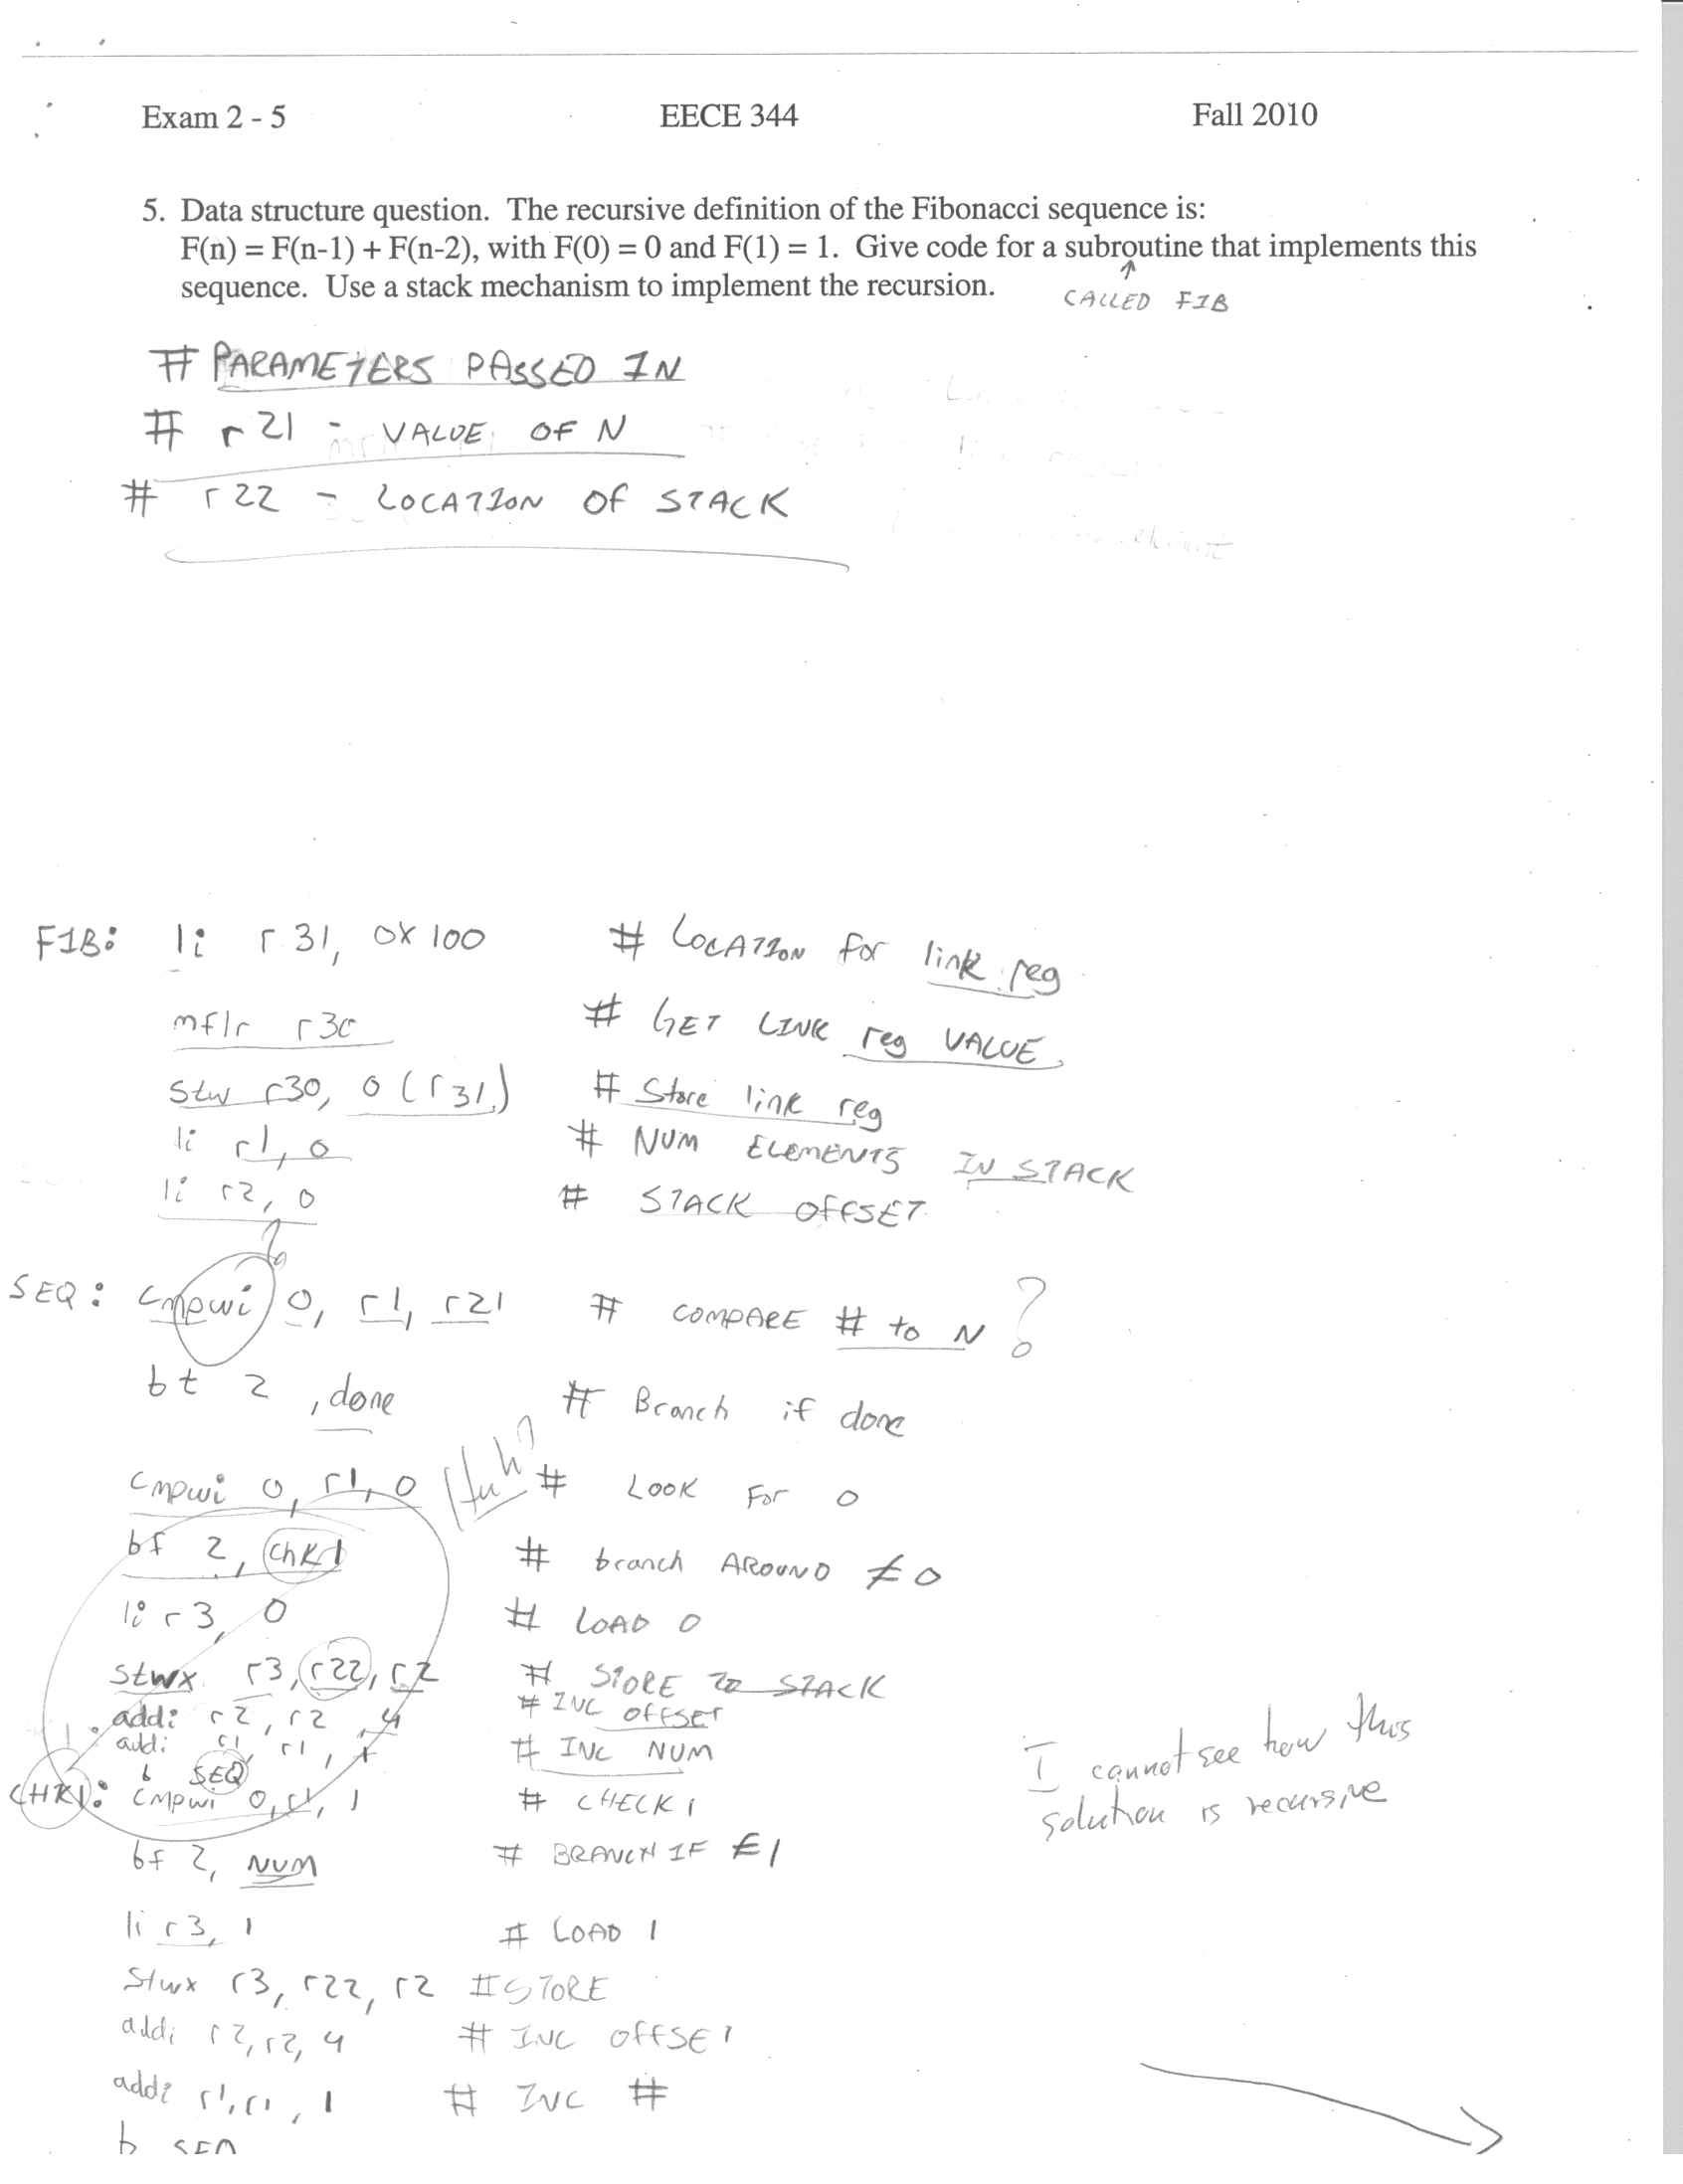 Exam 2 - 5 EECE 344 Fall 2010
5. Data structure question. The recursive definition of the Fibonacci sequence is:
F(n) = F(n-1) + F(n-2), with F(0) = 0 and F(1) = 1. Give code for a subroutine that implements this
sequence. Use a stack mechanism to implement the recursion.
↑
CALLED FIB
# PARAMETERS PASSED IN
# r21 - VALUE OF N
# r22 - LOCATION OF STACK
FIB: li r31, 0x100 # LOCATION for link reg
mflr r30 # GET LINK reg VALUE
stw r30, 0(r31) # Store link reg
li r1, 0 # NUM ELEMENTS IN STACK
li r2, 0 # STACK OFFSET
?
SEQ: cmpwi 0, r1, r21 # COMPARE # to N ?
bt 2, done # Branch if done
cmpwi 0, r1, 0 Huh? # LOOK FOR 0
bf 2, chk1 # branch AROUND ≠ 0
li r3, 0 # LOAD 0
stwx r3, r22, r2 # STORE TO STACK
addi r2, r2, 4 # INC OFFSET
addi r1, r1, 1 # INC NUM
b SEQ
I cannot see how this
solution is recursive
CHK1: cmpwi 0, r1, 1 # CHECK 1
bf 2, NUM # BRANCH IF ≠ 1
li r3, 1 # LOAD 1
stwx r3, r22, r2 # STORE
addi r2, r2, 4 # INC OFFSET
addi r1, r1, 1 # INC #
b SEQ